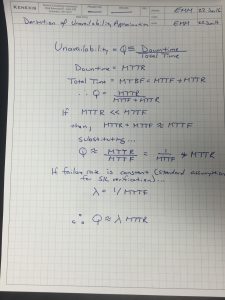 KENEXIS
EMM 22 Jan 16
Derivation of Unavailability Approximation
EMM
Unavailability = Q ≡ Downtime / Total Time
Downtime = MTTR
Total Time = MTBF = MTTF + MTTR
∴ Q = MTTR / MTTF + MTTR
If MTTR << MTTF
then, MTTR + MTTF ≈ MTTF
substituting...
Q ≈ MTTR / MTTF = 1 / MTTF * MTTR
If failure rate is constant (standard assumption
for SIL verification)...
λ = 1/MTTF
∴ Q ≈ λ MTTR